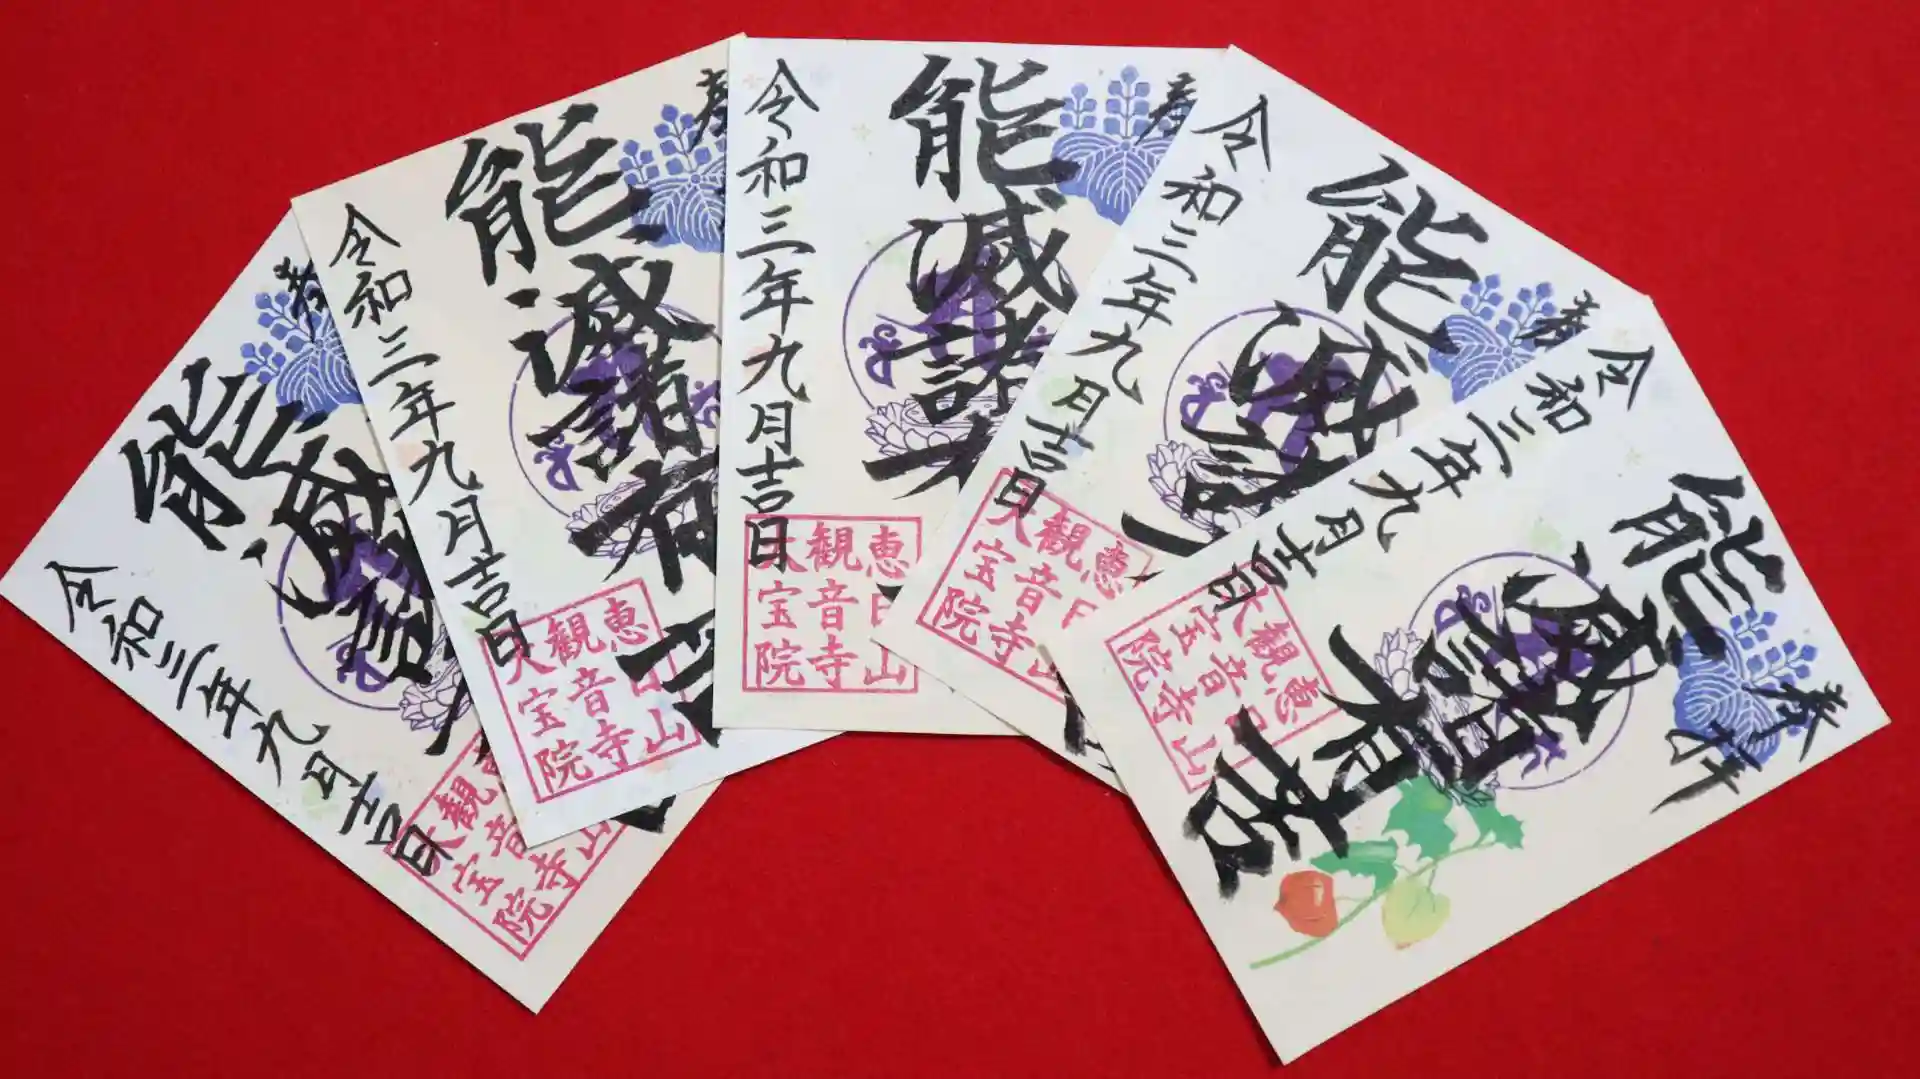 奉
能滅諸
令和三年九月吉日
山
観音寺
大宝院
奉
能滅諸有苦
令和三年九月吉日
恵日山
観音寺
大宝院
奉
能滅諸有
令和三年九月吉日
恵日山
観音寺
大宝院
奉
能滅諸
令和三年九月吉日
恵日山
観音寺
大宝院
奉拝
能滅諸有苦
令和三年九月吉日
恵日山
観音寺
大宝院